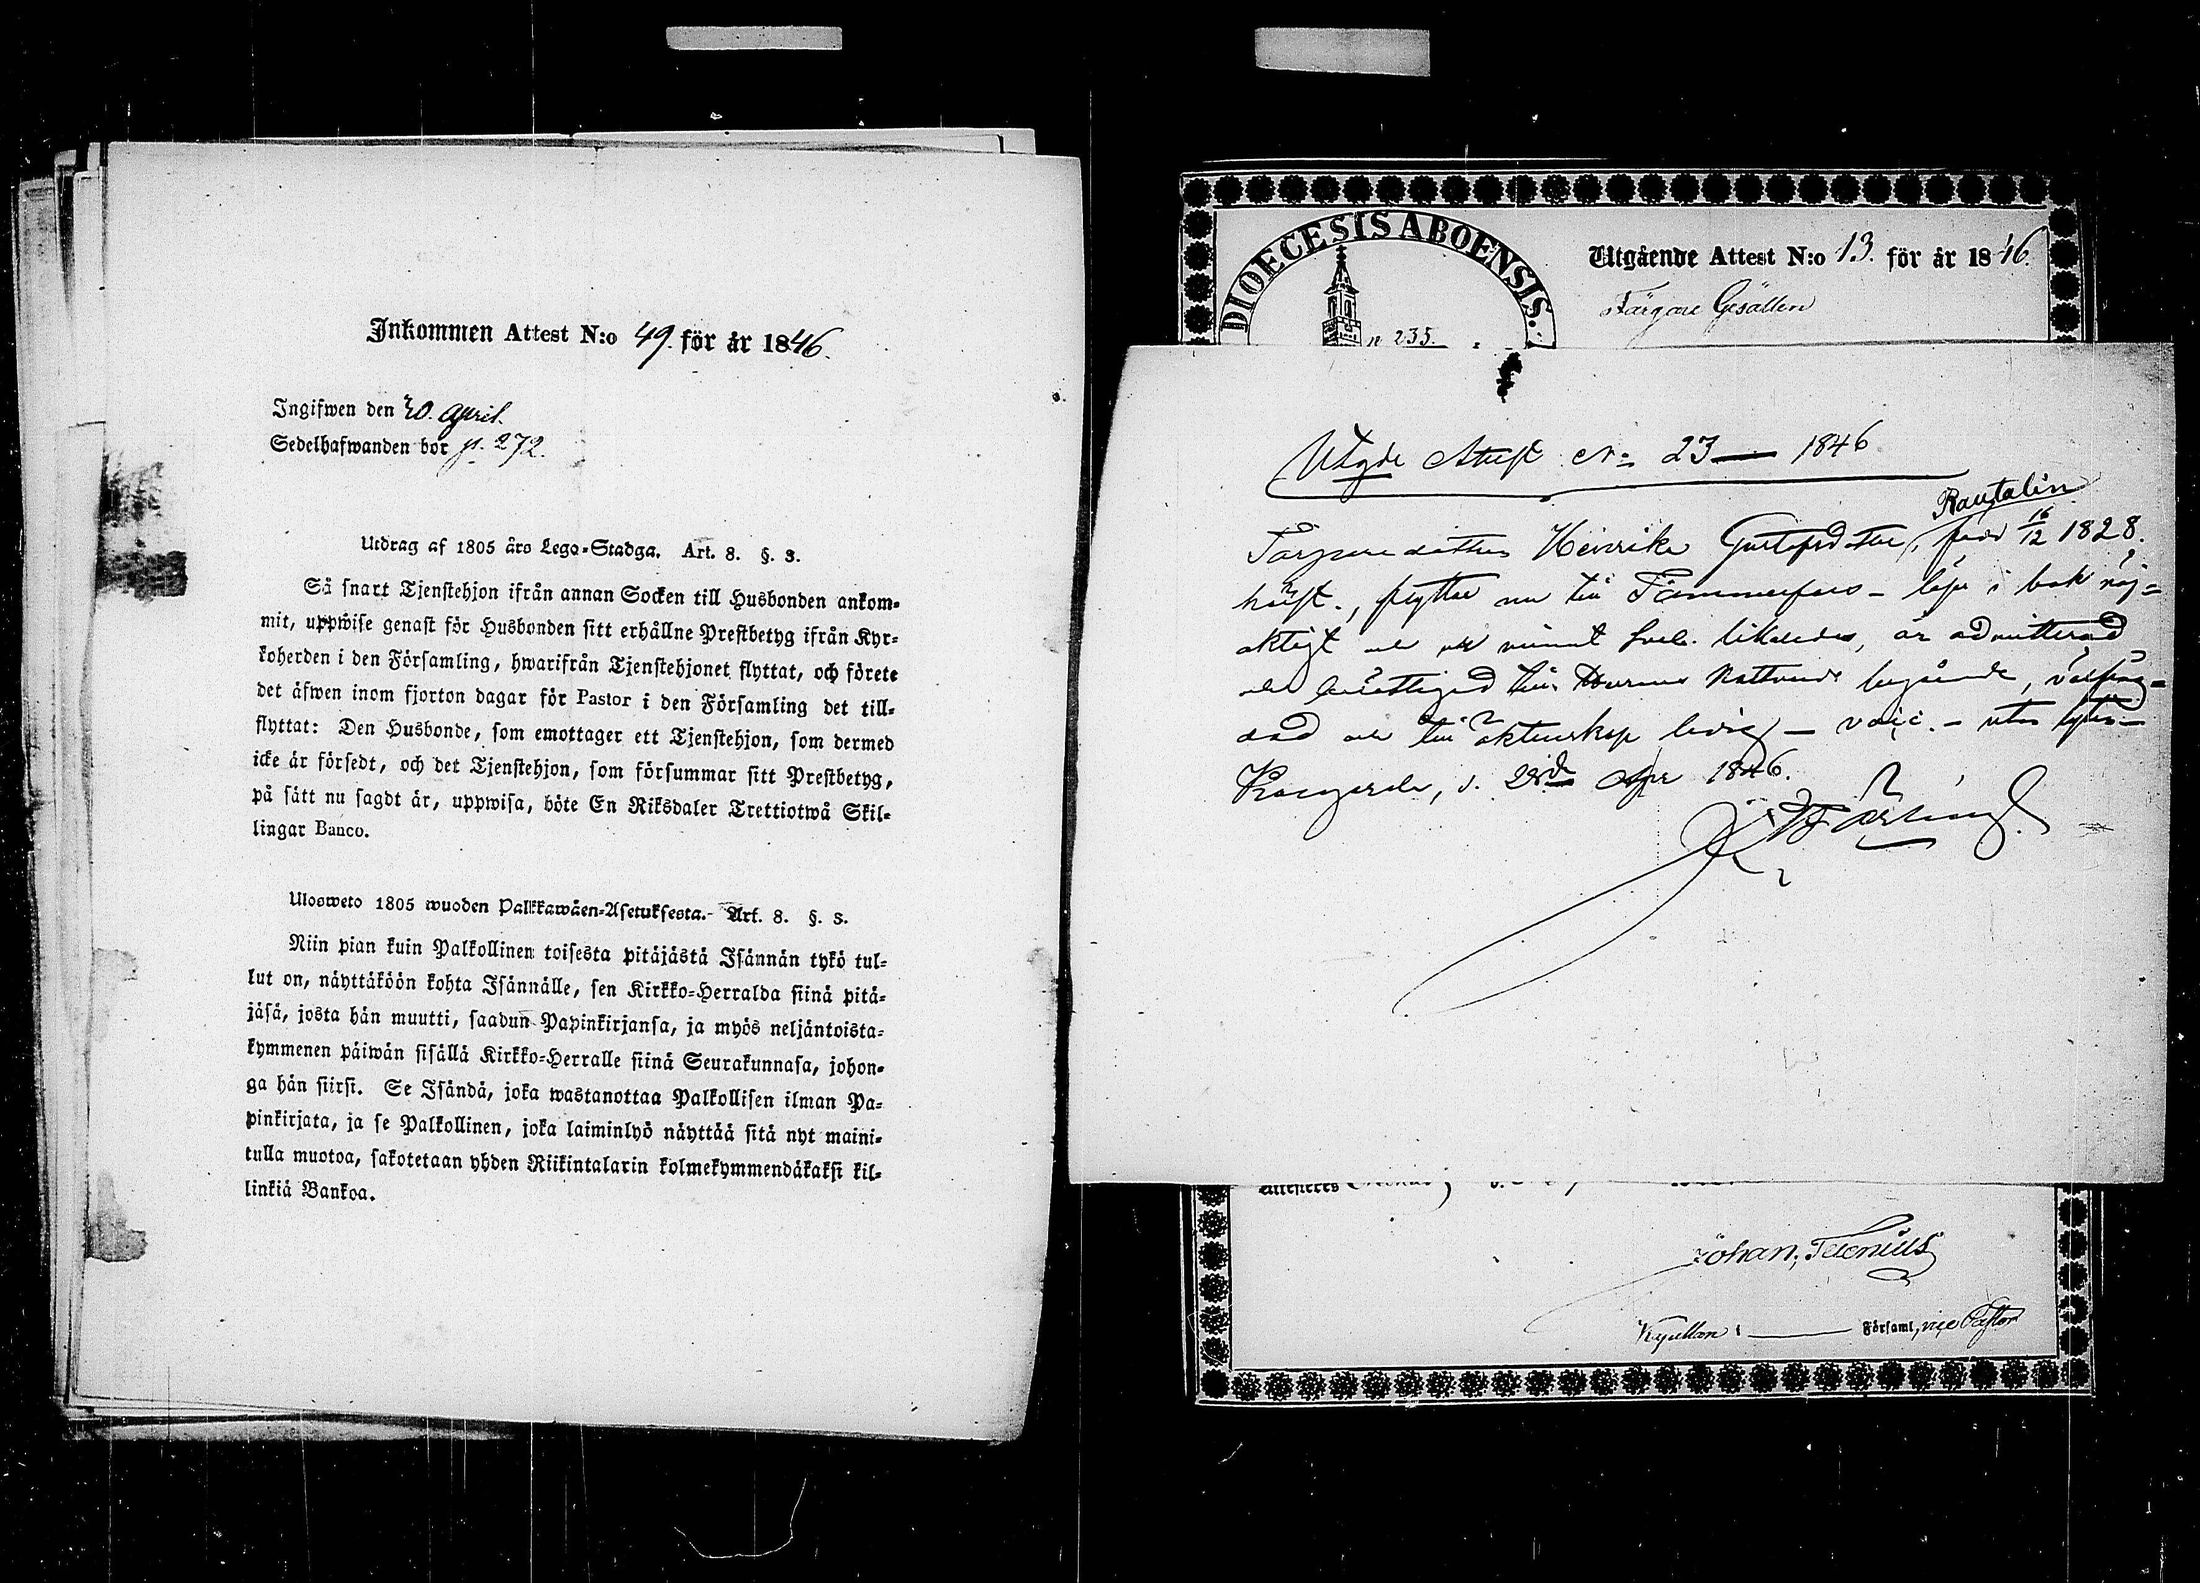 Inkommen Attest N:o 49. för år 1846.
Ingifwen den 20. April.
Sedelhafwanden bor p. 272.
Utdrag af 1805 års Lego-Stadga. Art. 8. §. 3.
Så snart Tjenstehjon ifrån annan Socken till Husbonden ankom-
mit, uppwise genast för Husbonden sitt erhållne Prestbetyg ifrån Kyr-
koherden i den Församling, hwarifrån Tjenstehjonet flyttat, och förete
det äfwen inom fjorton dagar för Pastor i den Församling det till-
flyttat: Den Husbonde, som emottager ett Tjenstehjon, som dermed
icke är försedt, och det Tjenstehjon, som försummar sitt Prestbetyg,
på sätt nu sagdt är, uppwisa, böte En Riksdaler Trettiotwå Skil-
lingar Banco.
Ulosweto 1805 wuoden Palkkawäen-Asetuksesta. Art. 8. §. 3.
Niin pian kuin Palkollinen toisesta pitäjästä Isännän tykö tul-
lut on, näyttäköön kohta Isännälle, sen Kirkko-Herralda siinä pitä-
jäsä, josta hän muutti, saadun Papinkirjansa, ja myös neljäntoista-
kymmenen päiwän sisällä Kirkko-Herralle siinä Seurakunnasa, johon-
ga hän siirsi. Se Isändä, joka wastanottaa Palkollisen ilman Pa-
pinkirjata, ja se Palkollinen, joka laiminlyö näyttää sitä nyt maini-
tulla muotoa, sakotetaan yhden Riikintalarin kolmekymmendäkaksi kil-
linkiä Bankoa.
DIOECESIS ABOENSIS.
Utgående Attest N:o 13. för år 1846.
Färgare Gesällen
p. 235.
Utgde Attest No 23 — 1846
Rautalin
Henrika Gustafsdotter, född 16/12 1828.
flyttar nu till Tammerfors - läser i bok
aktigt och likaledes, är admitterad
och berättigad till Herrans Nattvards begående,
och till äktenskap ledig —
Kangasala, d. 28de Apr 1846.
Johan Telenius
Församl, vice Pastor